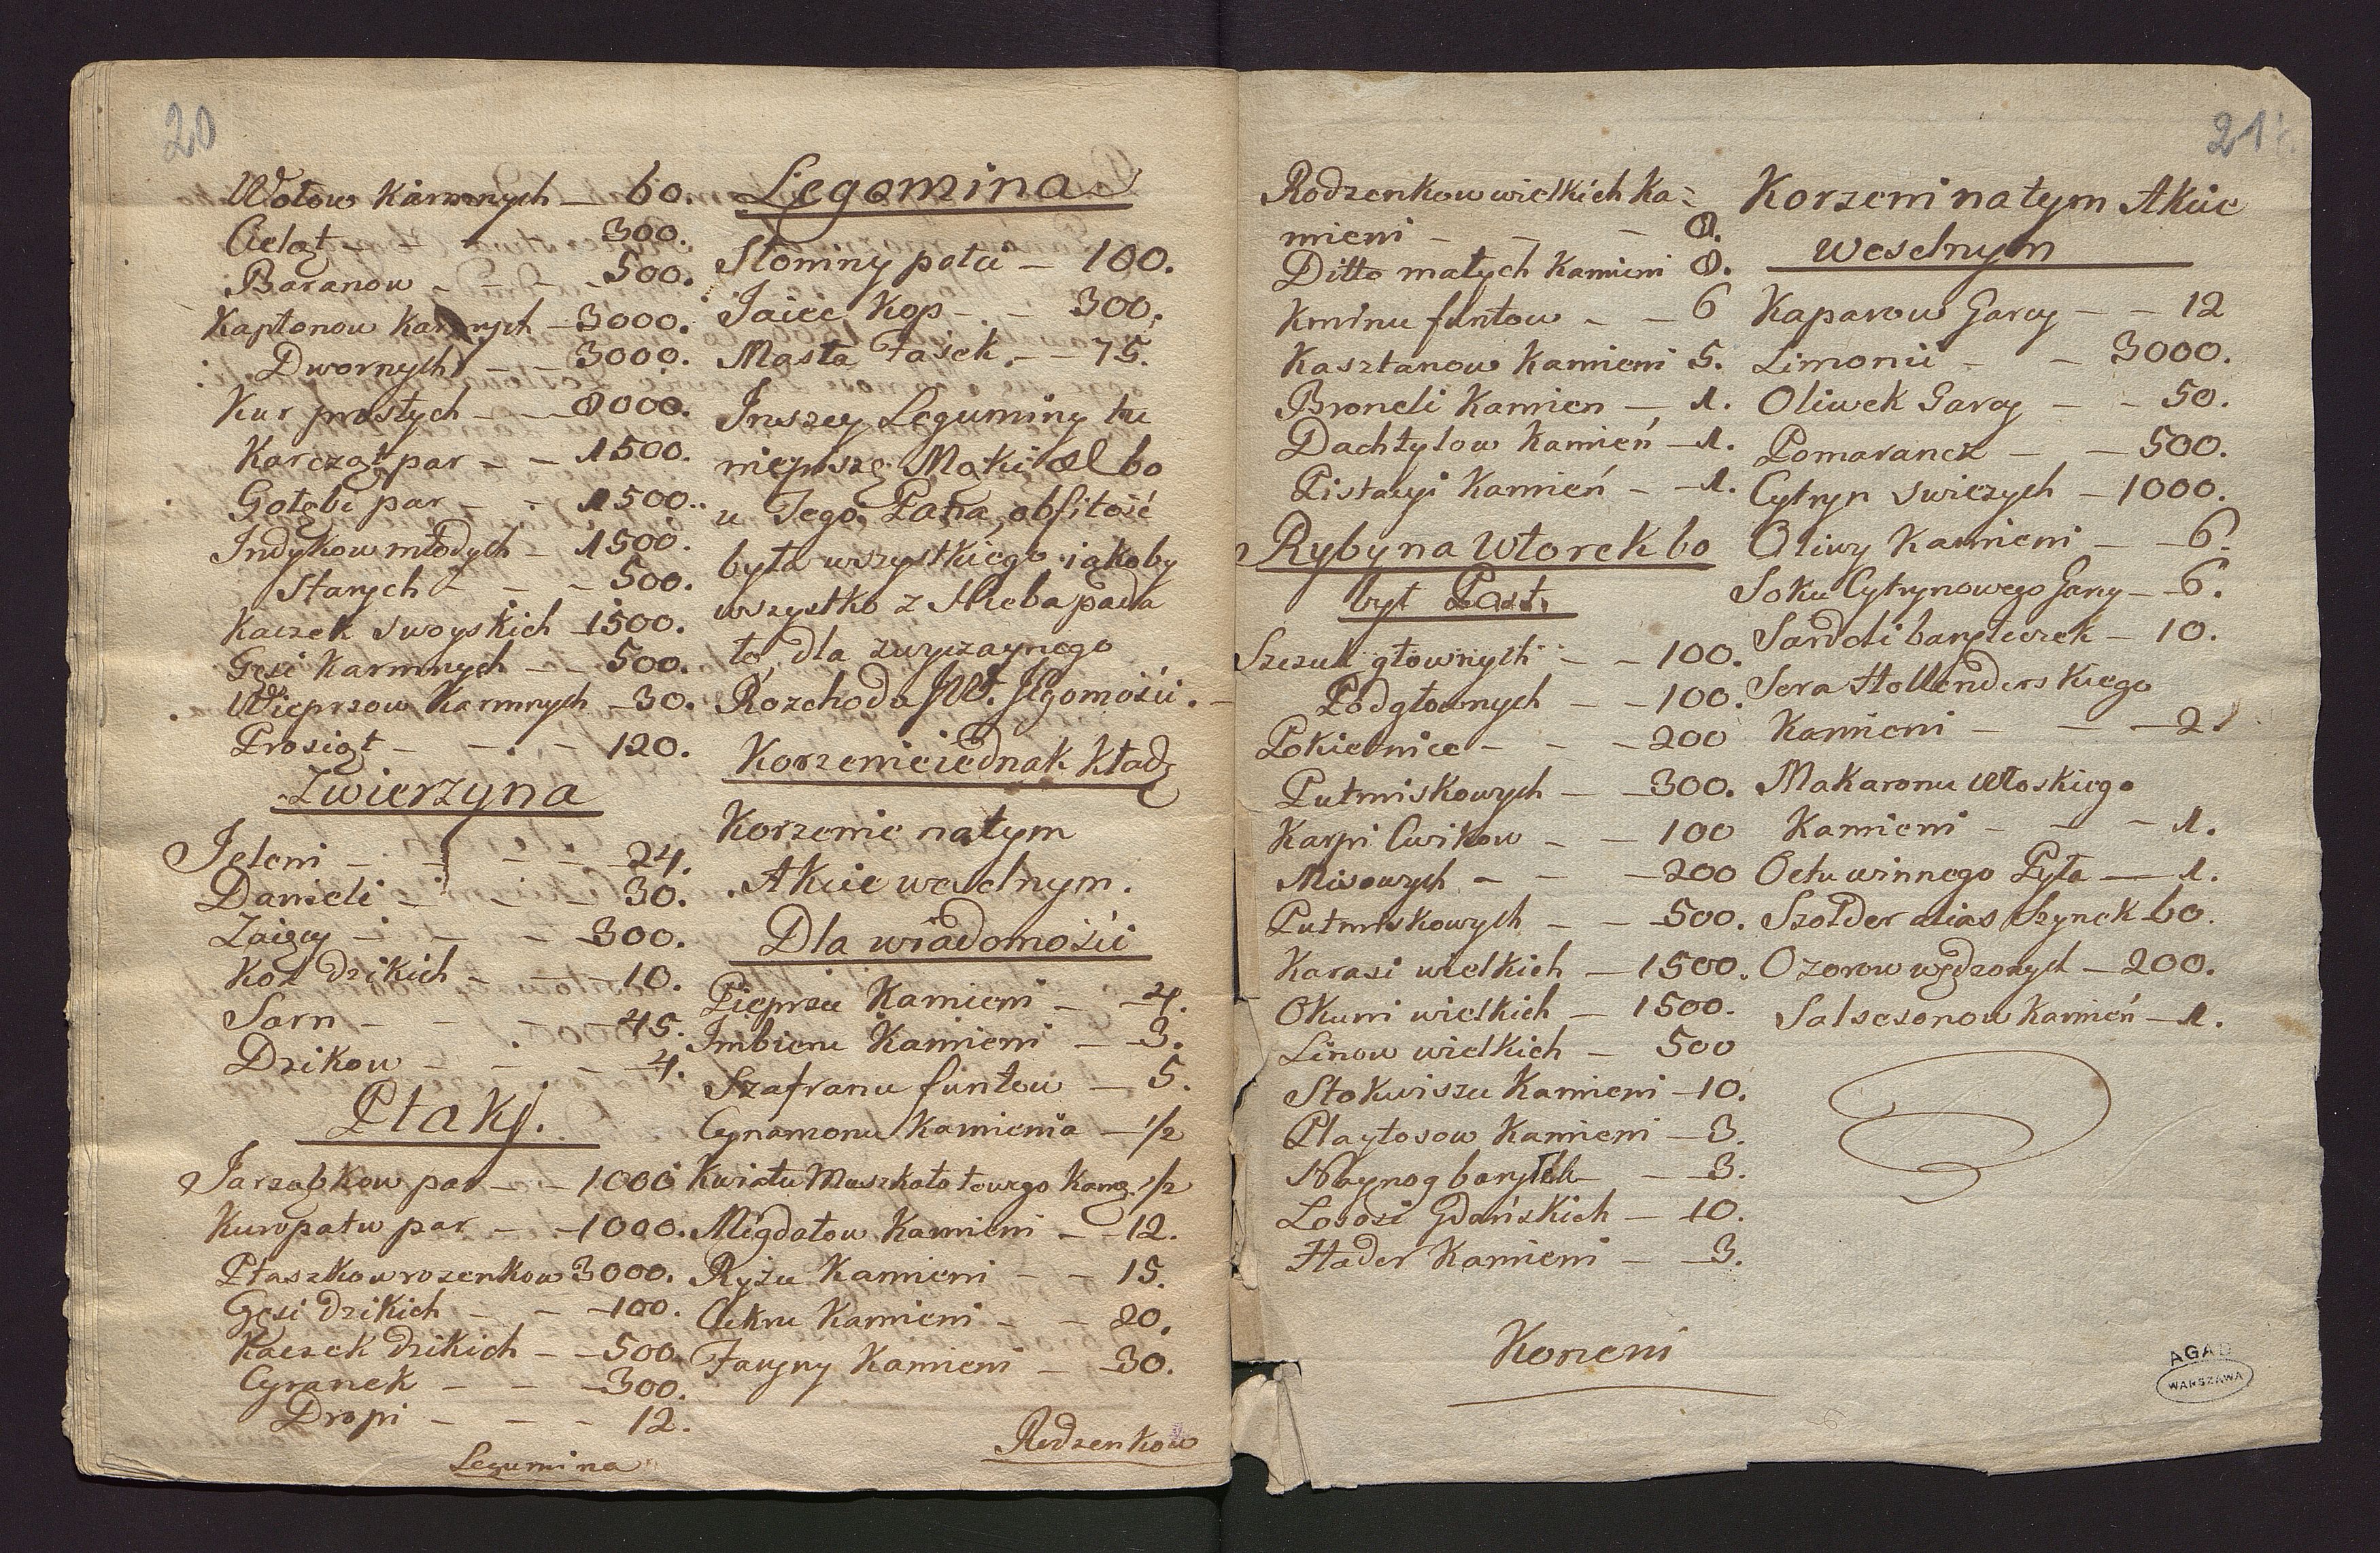 20
Wołow Karmnych — 60.
Cieląt — — 300.
Baranow — — 500.
Kapłonow Karmnych — 3000.
Dwornych — — 3000.
Kur prostych — — 8000.
Kurcząt par — — 1500.
Gołębi par — — 1500.
Indykow młodych — 1500.
Starych — — — 500.
Kaczek swoyskich 1500.
Gęsi Karmnych — — 500.
Wieprzow Karmnych — 30.
Prosiąt — — — 120.
Zwierzyna
Jeleni — — — 24.
Danieli — — — 30.
Zaięcy — — — 300.
Koz dzikich — — 10.
Sarn — — — 45.
Dzikow — — — 4.
Ptakj.
Jarząbkow par — — 1000
Kuropatw par — — 1000.
Ptaszkow rozenkow 3000.
Gęsi dzikich — — 100.
Kaczek dzikich — — 500.
Cyranek — — — 300.
Dropi — — — 12.
Legumina
Legomina
Słoniny połci — 100.
Jaiec Kop — — 300.
Masła Fasek — — 75.
Inszey Leguminy tu
niepiszę Mąki albo
u Tego Pana, obfitość
była wszystkiego iakoby
wszystko z Nieba pada
ło, dla zwyczaynego
Rozchodu JW. Jegomości.
Korzenie iednak kładę
Korzenie na tym
Akcie weselnym.
Dla wiadomości
Pieprzu Kamieni — 4.
Imbieru Kamieni — 3.
Szafranu funtow — 5.
Cynamonu Kamienia — 1/2
Kwiatu Muszkatołowego Kam. 1/2
Migdałow Kamieni — — 12.
Ryżu Kamieni — — 15.
Cukru Kamieni — — 20.
Faryny Kamieni — 30.
Rodzenkow
21
Rodzenkow wielkich Ka-
mieni — — — 8.
Ditto małych Kamieni 8.
Kminu funtow — — 6
Kasztanow Kamieni 5.
Broneli Kamien — 1.
Dachtylow Kamień — 1.
Pistacyi Kamień — — 1.
Ryby na Wtorek bo
był Post.
Szczuk głownych — — 100.
Podgłownych — — 100.
Łokietnic — — — 200
Pułmiskowych — — 300.
Karpi Cwikow — — 100
Misowych — — — 200
Pułmiskowych — — 500.
Karasi wielkich — 1500.
Okuni wielkich — 1500.
Linow wielkich — 500
Stokwiszu Kamieni — 10.
Playtosow Kamieni — 3.
Naynog baryłek — 3.
Lososi Gdańskich — 10.
Hader Kamieni — 3.
Korzeni
Korzeni na tym Akcie
weselnym
Kaparow Garcy — — 12
Limonii — — 3000.
Oliwek Garcy — — 50.
Pomarancz — — 500.
Cytryn swieżych — 1000.
Oliwy Kamieni — — 6.
Soku Cytrynowego Garcy — 6.
Sardeli baryleczek — 10.
Sera Hollenderskiego
Kamieni — — — 2.
Makaronu Włoskiego
Kamieni — — — 1.
Octu winnego Pyta — 1.
Szołder alias Szynek 60.
Ozorow wędzonych — 200.
Salsesonow Kamień — 1.
AGAD
WARSZAWA